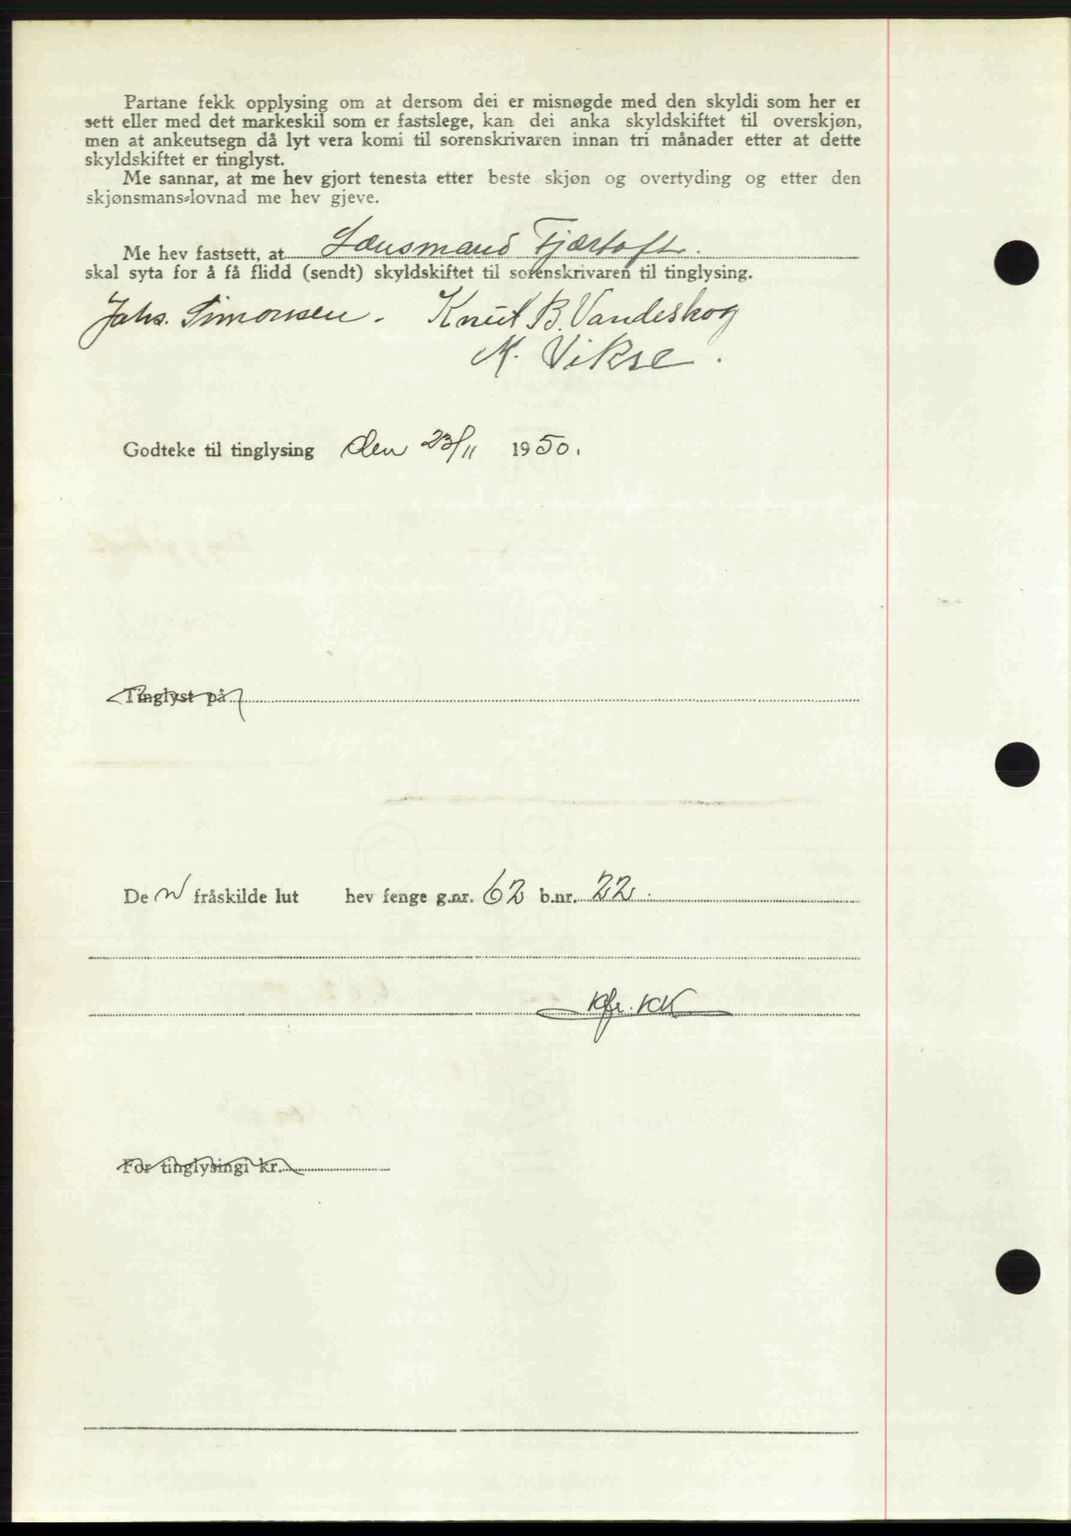 Partane fekk opplysing om at dersom dei er misnøgde med den skyldi som her er
sett eller med det markeskil som er fastslege, kan dei anka skyldskiftet til overskjøn,
men at ankeutsegn då lyt vera komi til sorenskrivaren innan tri månader etter at dette
skyldskiftet er tinglyst.
Me sannar, at me hev gjort tenesta etter beste skjøn og overtyding og etter den
skjønsmans-lovnad me hev gjeve.
Me hev fastsett, at Lensmand Fjærtoft
skal syta for å få flidd (sendt) skyldskiftet til sorenskrivaren til tinglysing.
Johs. Simonsen. Knut B. Vandeskog
M. Vikse.
Godteke til tinglysing den 23/11 1950.
Tinglyst på
De n fråskilde lut hev fenge g.nr. 62 b.nr. 22.
Kfr. KK
For tinglysingi kr.